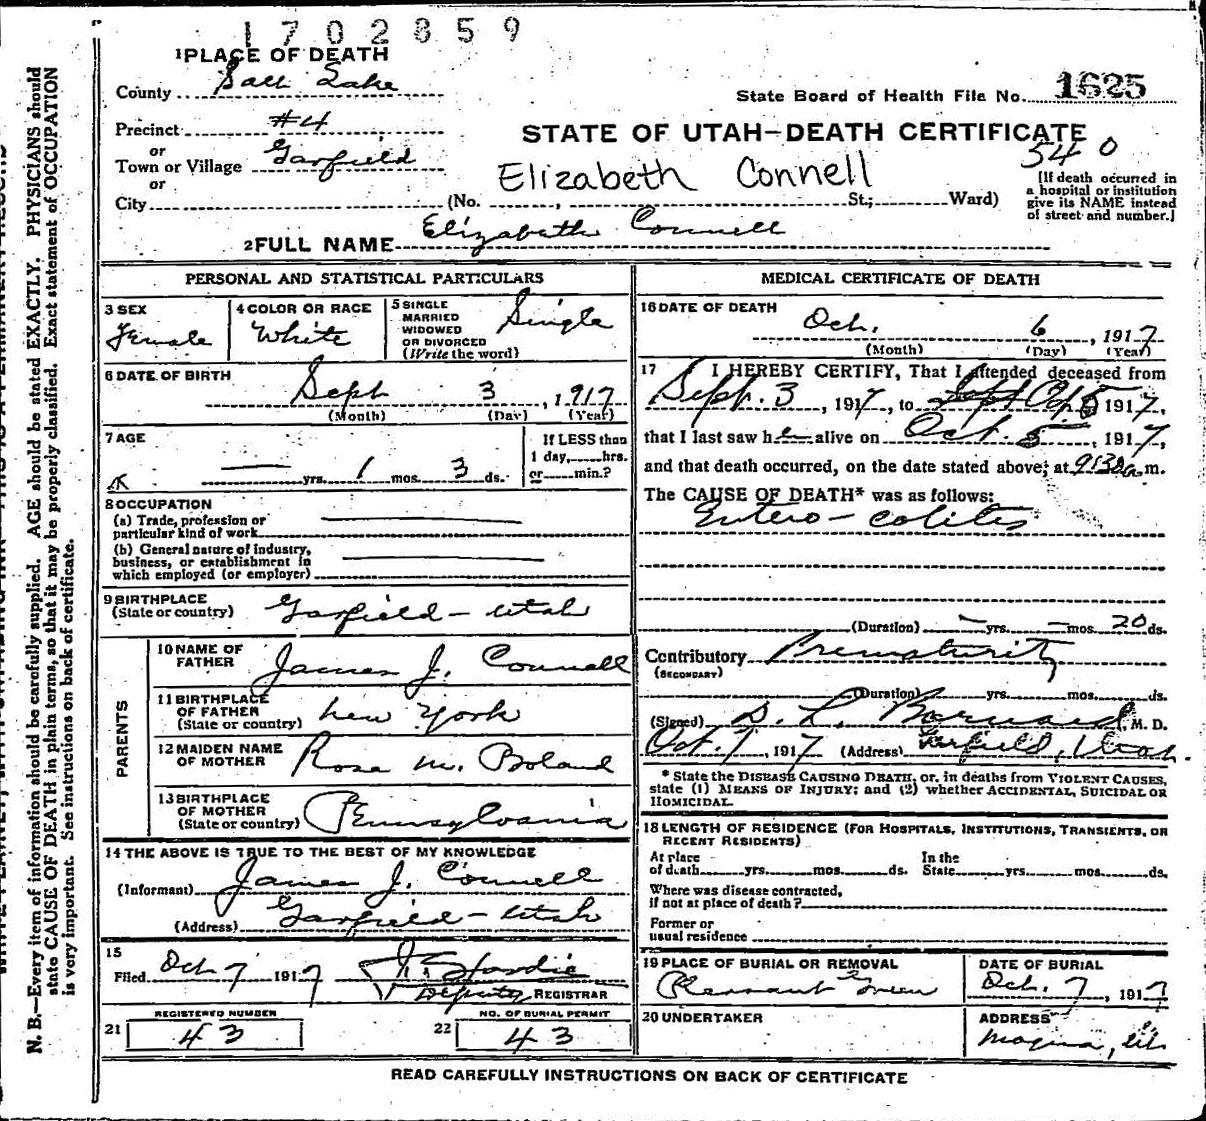 1702859
1 PLACE OF DEATH
County Salt Lake
State Board of Health File No. 1625
Precinct #4
STATE OF UTAH—DEATH CERTIFICATE
or
540
Town or Village Garfield
Elizabeth Connell
or
City (No. , St.; Ward)
[If death occurred in
a hospital or institution
give its NAME instead
of street and number.]
2 FULL NAME Elizabeth Connell
PERSONAL AND STATISTICAL PARTICULARS
3 SEX
Female
4 COLOR OR RACE
White
5 SINGLE
MARRIED
WIDOWED
OR DIVORCED
(Write the word)
Single
6 DATE OF BIRTH
Sept 3, 1917
(Month) (Day) (Year)
7 AGE
— yrs. 1 mos. 3 ds.
If LESS than
1 day, hrs.
or min.?
8 OCCUPATION
(a) Trade, profession or
particular kind of work
(b) General nature of industry,
business, or establishment in
which employed (or employer)
9 BIRTHPLACE
(State or country) Garfield - Utah
PARENTS
10 NAME OF
FATHER James J. Connell
11 BIRTHPLACE
OF FATHER
(State or country) New York
12 MAIDEN NAME
OF MOTHER Rose M. Boland
13 BIRTHPLACE
OF MOTHER
(State or country) Pennsylvania
14 THE ABOVE IS TRUE TO THE BEST OF MY KNOWLEDGE
(Informant) James J. Connell
(Address) Garfield - Utah
15
Filed Oct 7, 1917
Hardie
Deputy REGISTRAR
REGISTERED NUMBER
21 43
NO. OF BURIAL PERMIT
22 43
MEDICAL CERTIFICATE OF DEATH
16 DATE OF DEATH
Oct. 6, 1917
(Month) (Day) (Year)
17 I HEREBY CERTIFY, That I attended deceased from
Sept. 3, 1917, to Sept Oct 5 1917,
that I last saw her alive on Oct. 5, 1917,
and that death occurred, on the date stated above, at 9:30 a m.
The CAUSE OF DEATH* was as follows:
Entero-colitis
(Duration) — yrs. — mos. 20 ds.
Contributory Prematurity
(SECONDARY)
(Duration) yrs. mos. ds.
(Signed) D. L. Barnard, M. D.
Oct. 7, 1917 (Address) Garfield, Utah.
* State the DISEASE CAUSING DEATH, or, in deaths from VIOLENT CAUSES,
state (1) MEANS OF INJURY; and (2) whether ACCIDENTAL, SUICIDAL OR
HOMICIDAL.
18 LENGTH OF RESIDENCE (FOR HOSPITALS, INSTITUTIONS, TRANSIENTS, OR
RECENT RESIDENTS)
At place
of death yrs. mos. ds.
In the
State yrs. mos. ds.
Where was disease contracted,
if not at place of death?
Former or
usual residence
19 PLACE OF BURIAL OR REMOVAL
Pleasant Green
DATE OF BURIAL
Oct. 7, 1917
20 UNDERTAKER
ADDRESS
Magna, Ut.
READ CAREFULLY INSTRUCTIONS ON BACK OF CERTIFICATE
N. B.—Every item of information should be carefully supplied. AGE should be stated EXACTLY. PHYSICIANS should
state CAUSE OF DEATH in plain terms, so that it may be properly classified. Exact statement of OCCUPATION
is very important. See instructions on back of certificate.